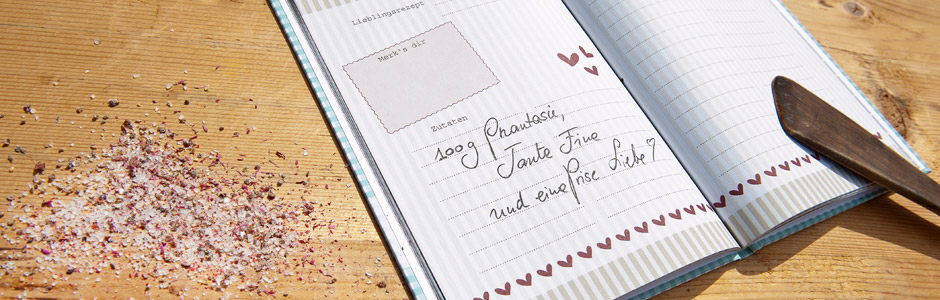 Lieblingsrezept
Merk's dir
Zutaten
100g Phantasie,
Tante Fine
und eine Prise Liebe